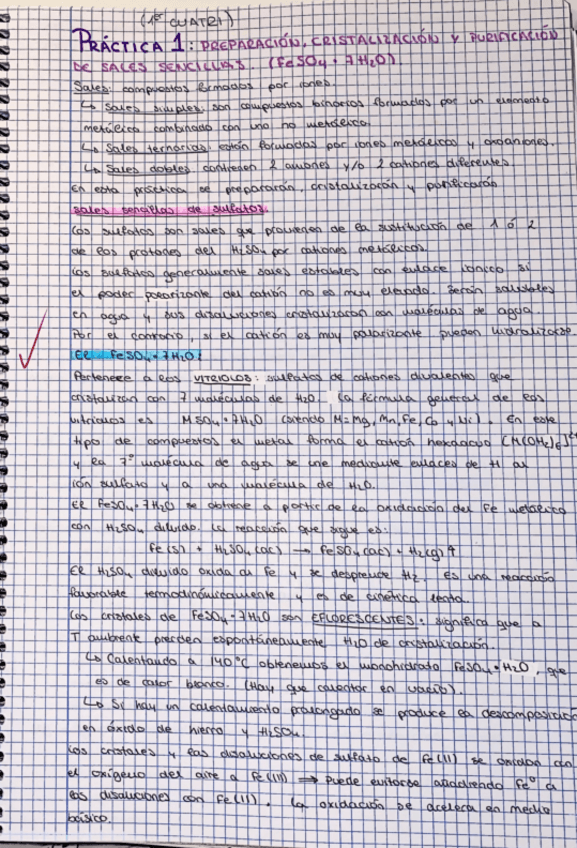 (1er CUATRI)
PRÁCTICA 1: PREPARACIÓN, CRISTALIZACIÓN Y PURIFICACIÓN
DE SALES SENCILLAS. (FeSO4 · 7H2O)
Sales: compuestos formados por iones.
↳ Sales simples: son compuestos binarios formados por un elemento
metálico combinado con uno no metálico.
↳ Sales ternarias: están formadas por iones metálicos y oxoaniones.
↳ Sales dobles: contienen 2 aniones y/o 2 cationes diferentes
En esta práctica se prepararán, cristalizarán y purificarán
sales sencillas de sulfatos.
Los sulfatos son sales que provienen de la sustitución de 1 ó 2
de los protones del H2SO4 por cationes metálicos.
Los sulfatos generalmente sales estables con enlace iónico si
el poder polarizante del catión no es muy elevado. Serán solubles
en agua y sus disoluciones cristalizarán con moléculas de agua.
Por el contrario, si el catión es muy polarizante pueden hidrolizarse
El FeSO4 · 7H2O:
Pertenece a los VITRIOLOS: sulfatos de cationes divalentes que
cristalizan con 7 moléculas de H2O. La fórmula general de los
vitriolos es MSO4 · 7H2O (siendo M=Mg, Mn, Fe, Co y Ni). En este
tipo de compuestos el metal forma el catión hexaacuo [M(OH2)6]2+
y la 7ª molécula de agua se une mediante enlaces de H al
ión sulfato y a una molécula de H2O.
El FeSO4 · 7H2O se obtiene a partir de la oxidación del Fe metálico
con H2SO4 diluido. La reacción que sigue es:
Fe(s) + H2SO4(ac) → FeSO4(ac) + H2(g)↑
El H2SO4 diluido oxida al Fe y se desprende H2. Es una reacción
favorable termodinámicamente y es de cinética lenta.
Los cristales de FeSO4 · 7H2O son EFLORESCENTES: significa que a
T ambiente pierden espontáneamente H2O de cristalización.
↳ Calentando a 140°C obtenemos el monohidrato FeSO4 · H2O, que
es de color blanco. (Hay que calentar en vacío).
↳ Si hay un calentamiento prolongado se produce la descomposición
en óxido de hierro y H2SO4.
Los cristales y las disoluciones de sulfato de Fe(II) se oxidan con
el oxígeno del aire a Fe(III) ⟹ Puede evitarse añadiendo Fe° a
las disoluciones con Fe(II). La oxidación se acelera en medio
básico.